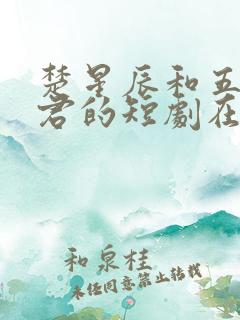 楚星辰和五
君的短劇在
和泉桂
未经同意禁止转载